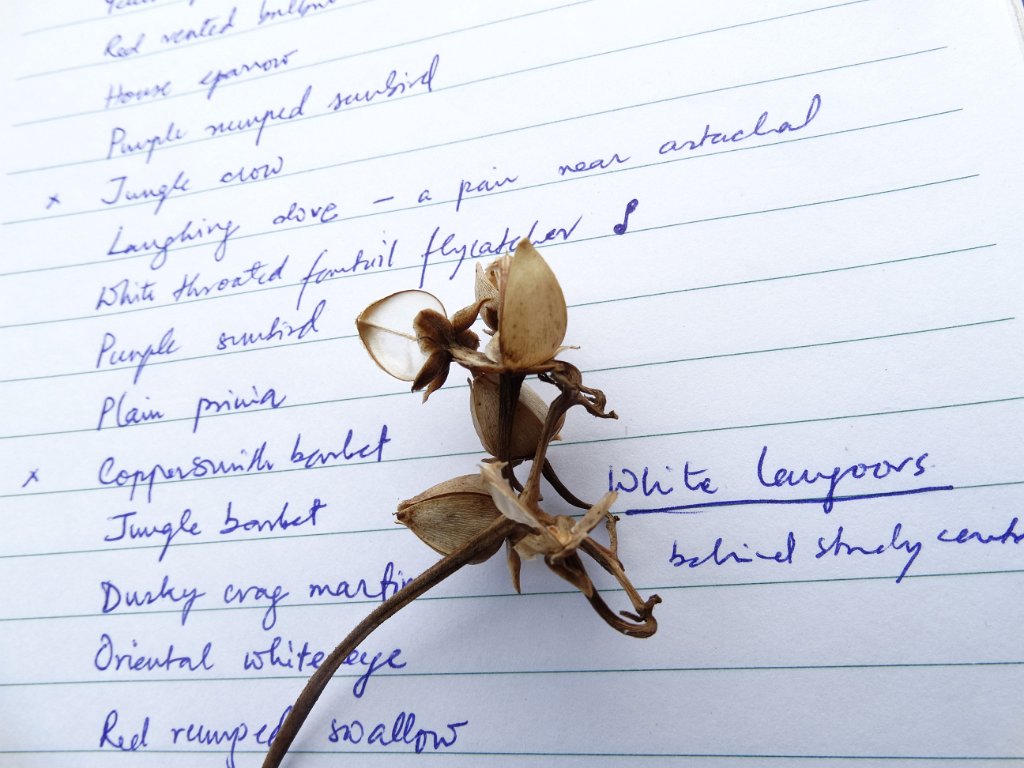 Red vented bulbul
House sparrow
Purple rumped sunbird
x Jungle crow
Laughing dove - a pair near astachal
White throated fantail flycatcher
Purple sunbird
Plain prinia
x Coppersmith barbet
Jungle barbet
White langoors
behind study
Dusky crag martin
Oriental white eye
Red rumped swallow